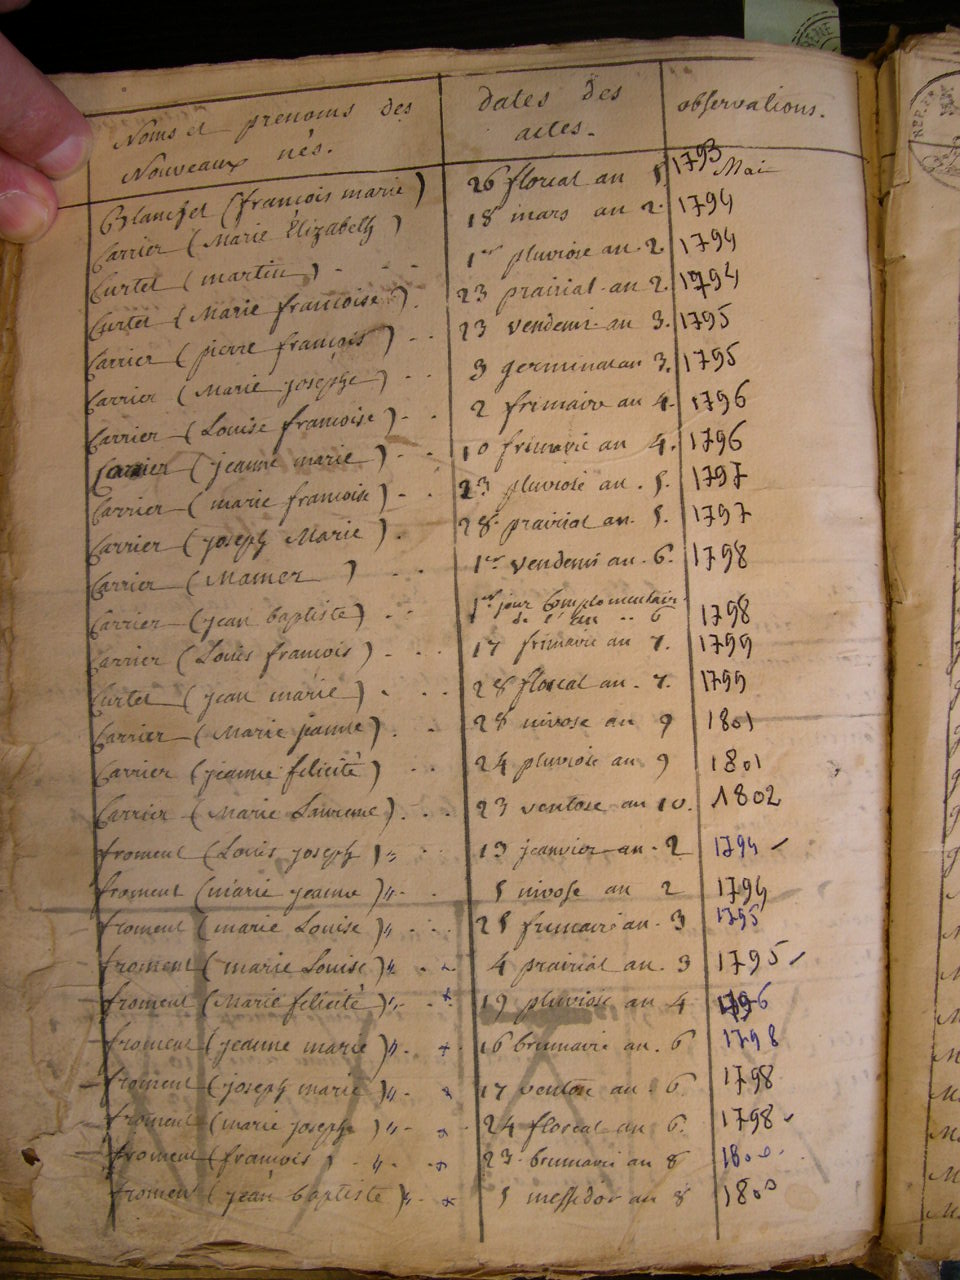 Noms et prenoms des
Nouveaux nés.
dates des
actes.
observations.
Blanchet (françois marie) 26 floreal an 1. 1793 Mai
Carrier (Marie Élizabeth) 18 mars an 2. 1794
Curtet (martin) 1er pluviose an 2. 1794
Curtet (Marie francoise) 23 prairial an 2. 1794
Carrier (pierre françois) 23 vendemi. an 3. 1795
Carrier (Marie josephe) 3 germinal an 3. 1795
Carrier (Louise francoise) 2 frimaire an 4. 1796
Carrier (jeanne marie) 10 frimaire an 4. 1796
Carrier (marie francoise) 23 pluviose an. 5. 1797
Carrier (joseph Marie) 28 prairial an. 5. 1797
Carrier (Mamer) 1er vendemi an. 6. 1798
Carrier (jean baptiste) 1er jour Complementaire
de l'an 6 1798
Carrier (Louis francois) 17 frimaire an 7. 1799
Curtet (jean marie) 28 floreal an. 7. 1799
Carrier (Marie jeanne) 28 nivose an 9 1801
Carrier (jeanne felicité) 24 pluviose an 9 1801
Carrier (Marie Laurence) 23 ventose an 10. 1802
froment (Louis joseph) 13 jeanvier an. 2 1794
froment (marie jeanne) 5 nivose an 2 1794
froment (marie Louise) 25 frimaire an. 3 1795
froment (marie Louise) 4 prairial an. 3 1795
froment (Marie felicité) 19 pluviose an 4 1796
froment (jeanne marie) 16 brumaire an. 6 1798
froment (joseph marie) 17 ventose an. 6 1798
froment (marie josephe) 24 floreal an 6. 1798
froment (francois) 23 brumaire an 8 1800
froment (jean baptiste) 5 messidor an 8 1800